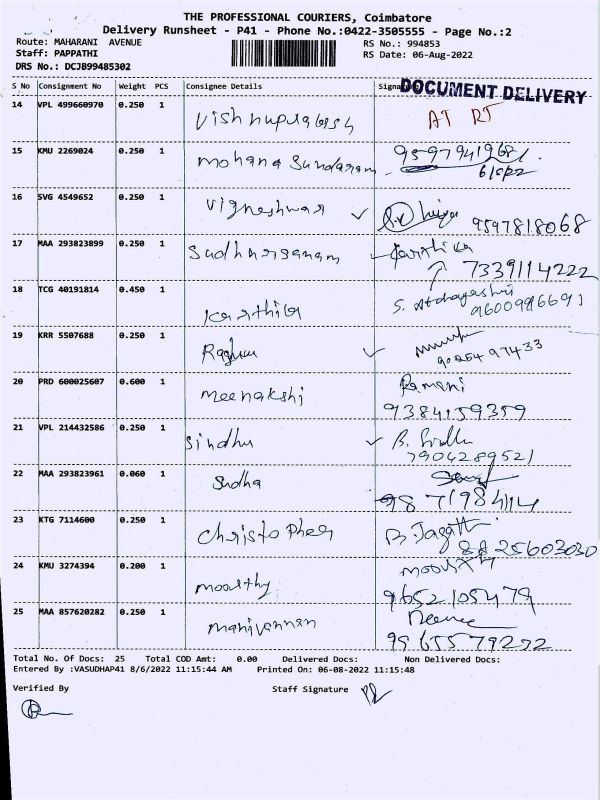 THE PROFESSIONAL COURIERS, Coimbatore
Delivery Runsheet - P41 - Phone No.:0422-3505555 - Page No.:2
Route: MAHARANI AVENUE RS No.: 994853
Staff: PAPPATHI RS Date: 06-Aug-2022
DRS No.: DCJB99485302
S No Consignment No Weight PCS Consignee Details
DOCUMENT DELIVERY
14 VPL 499660970 0.250 1 Vishnuprakash AT RT
15 KMU 2269024 0.250 1 Mohana Sundaram 9597941968
6/8/22
16 SVG 4549652 0.250 1 Vigneshwar 9597818068
17 MAA 293823899 0.250 1 Sudharsanam Karthika
7339114222
18 TCG 40191814 0.450 1 Karthika S.
9600986691
19 KRR 5507688 0.250 1 Raghu
9025497433
20 PRD 600025607 0.600 1 Meenakshi Ramani
9384159359
21 VPL 214432586 0.250 1 Sindhu B. Sindhu
7904289521
22 MAA 293823961 0.060 1 Sudha
9871984114
23 KTG 7114600 0.250 1 Christopher B. Jagath
8825603030
24 KMU 3274394 0.200 1 Moorthy
9652105479
25 MAA 857620282 0.250 1 Manivannan
9565579232
Total No. Of Docs: 25 Total COD Amt: 0.00 Delivered Docs: Non Delivered Docs:
Entered By :VASUDHAP41 8/6/2022 11:15:44 AM Printed On: 06-08-2022 11:15:48
Verified By Staff Signature